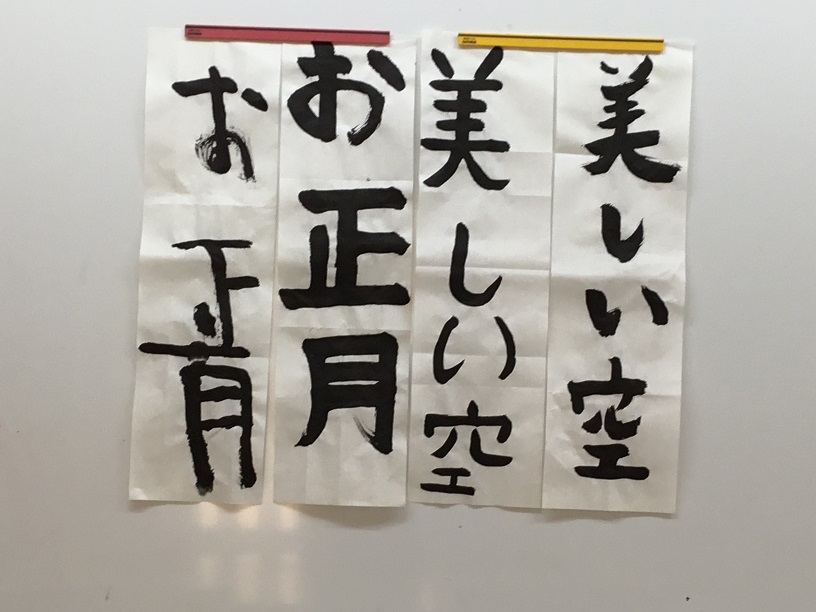 美しい空
美しい空
お正月
お正月